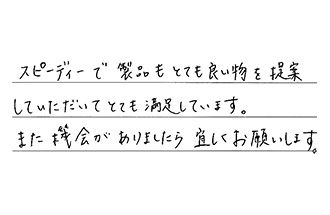 スピーディーで製品もとても良い物を提案
していただいてとても満足しています。
また機会がありましたら宜しくお願いします。